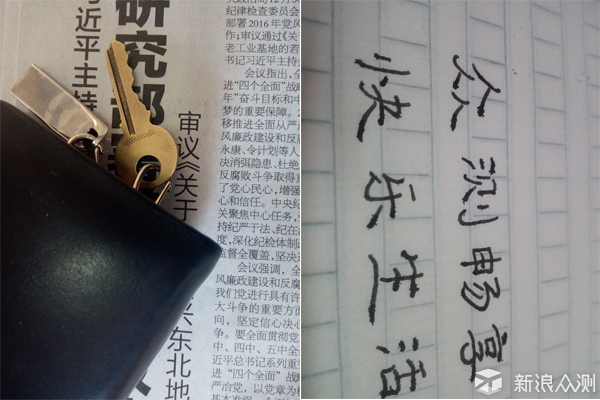 习近平主持
研究部
审议《关于
兴东北地
纪律检查委员会
部署2016年党风
作；审议通过《关
老工业基地的若
书记习近平主持
会议指出，全
进“四个全面”战略
年”奋斗目标和中
梦的重要保障。2
移推进全面从严
风廉政建设和反
永康、令计划等人
决消弭隐患、杜绝
反腐败斗争取得
了党心民心，增强
心和信任。中央纪
关聚焦中心任务，
持纪严于法、纪在
度，深化纪检体制
监督全覆盖，坚决
会议强调，全
风廉政建设和反腐
我们党进行具有许
大斗争的重要方
向，坚定信心决心
争。要全面贯彻党
中、四中、五中全
近平总书记系列重
“四个全面”战略
严治党，以党章为
众测畅享
快乐生活
新浪众测